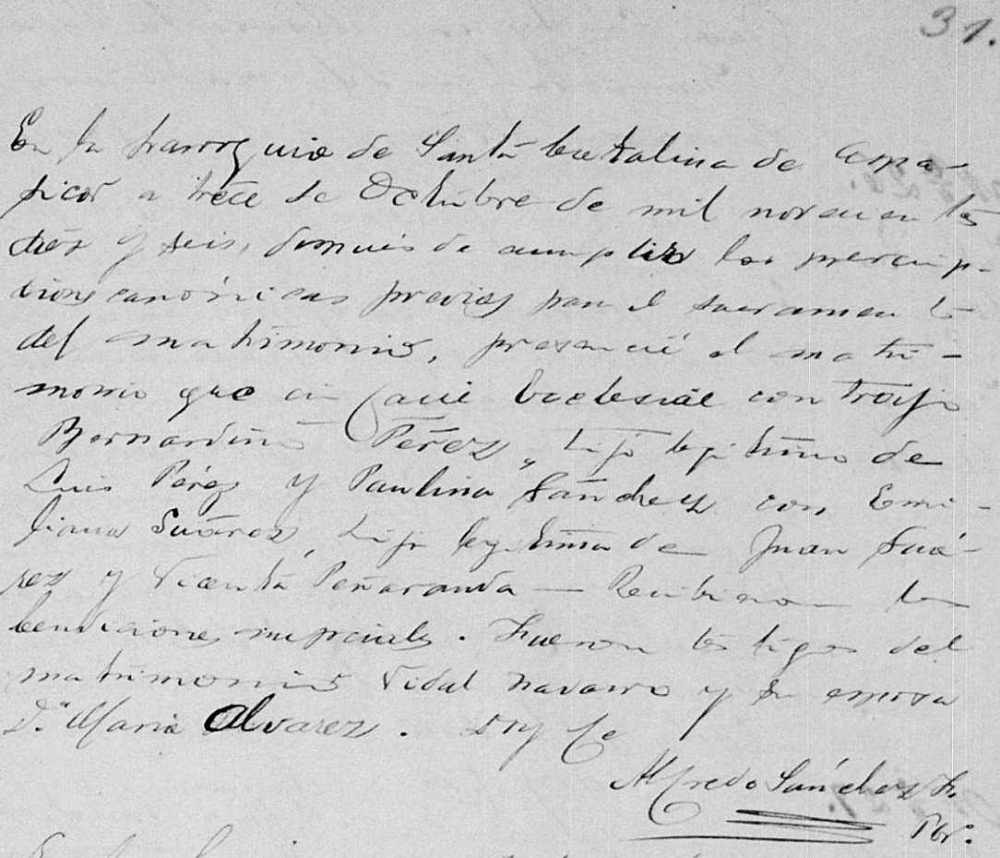 31.
En la parroquia de Santa Catalina de Cápa-
ricos a trece de Octubre de mil novecientos
diez y seis, después de cumplir las prescrip-
ciones canónicas previas para el sacramento
del matrimonio, presencié el matri-
monio que in facie Ecclesiae contrajo
Bernardino Pérez, hijo legítimo de
Luis Pérez y Paulina Sánchez con Emi-
liana Suárez, hija legítima de Juan Suá-
rez y Vicenta Peñaranda — Recibieron las
bendiciones nupciales. Fueron testigos del
matrimonio Vidal Navarro y su esposa
D.ª María Alvarez. Doy fe
Alfredo Sánchez
Pbr.